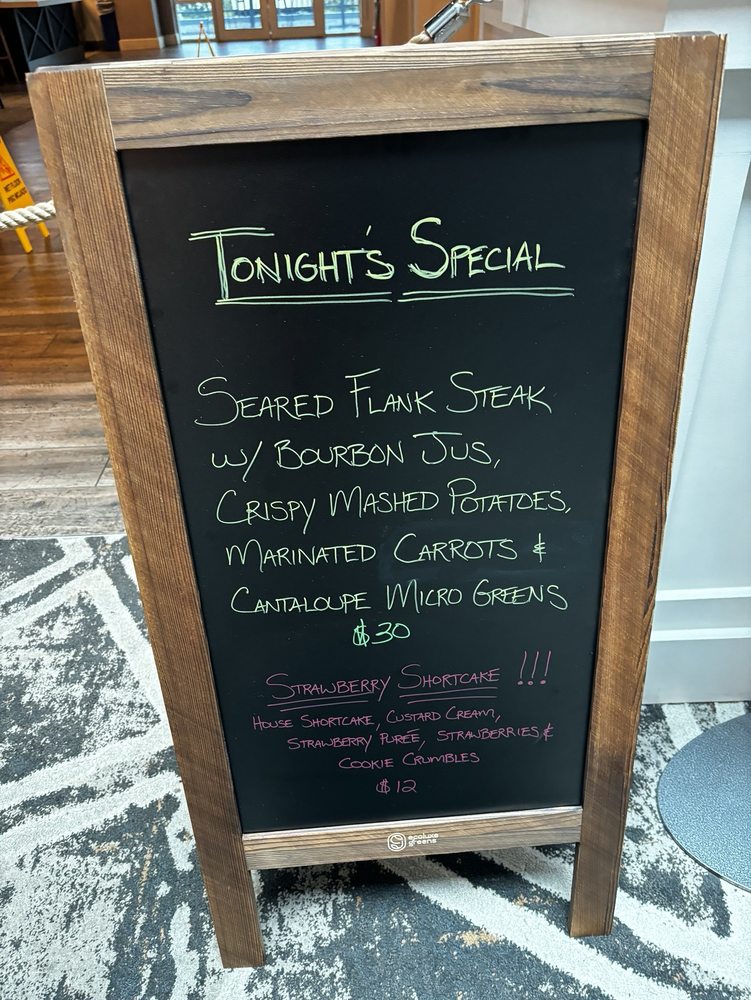 TONIGHT'S SPECIAL
SEARED FLANK STEAK
W/ BOURBON JUS,
CRISPY MASHED POTATOES,
MARINATED CARROTS &
CANTALOUPE MICRO GREENS
$30
STRAWBERRY SHORTCAKE !!!
HOUSE SHORTCAKE, CUSTARD CREAM,
STRAWBERRY PURÉE, STRAWBERRIES &
COOKIE CRUMBLES
$12
ecoluxe
greens